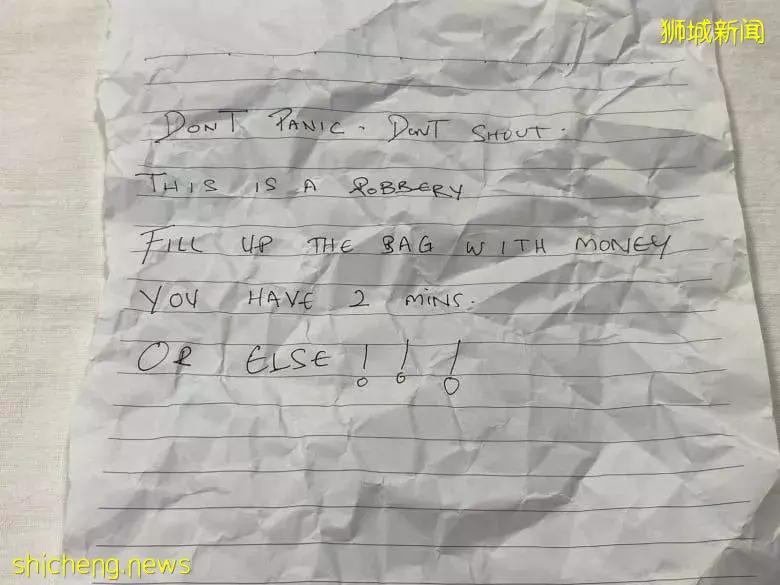 狮城新闻
DONT PANIC. DONT SHOUT.
THIS IS A ROBBERY
FILL UP THE BAG WITH MONEY
YOU HAVE 2 MINS.
OR ELSE !!!
shicheng.news